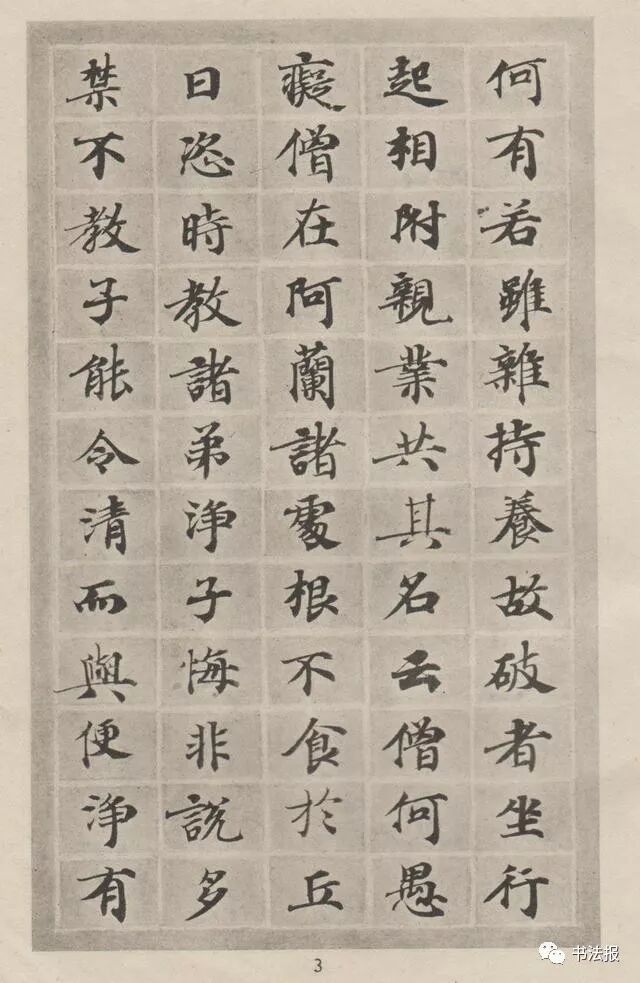 何有若雖雜持養故破者坐行
起相附親業共其名云僧何愚
癡僧在阿蘭諸處根不食於丘
日恣時教諸弟淨子悔非說多
禁不教子能令清而與便淨有
3
书法报